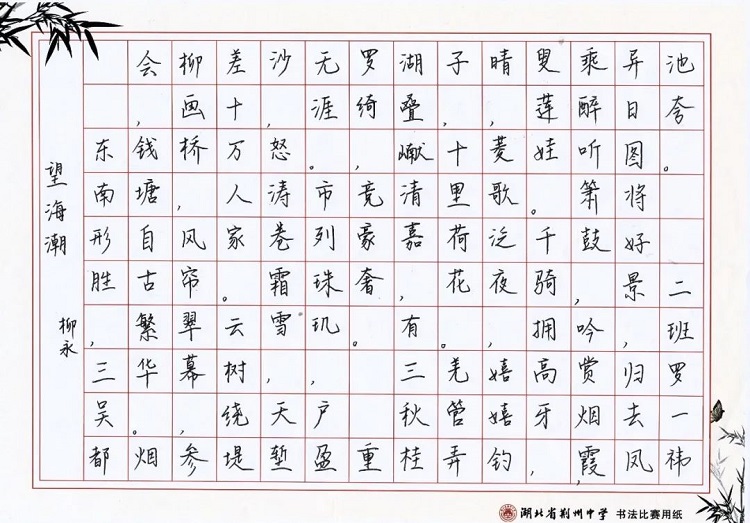 望海潮
柳永
东南形胜，三吴都
会，钱塘自古繁华。烟
柳画桥，风帘翠幕，参
差十万人家。云树绕堤
沙，怒涛卷霜雪，天堑
无涯。市列珠玑，户盈
罗绮，竞豪奢。重
湖叠𪩘清嘉，有三秋桂
子，十里荷花。羌管弄
晴，菱歌泛夜，嬉嬉钓
叟莲娃。千骑拥高牙，
乘醉听箫鼓，吟赏烟霞，
异日图将好景，归去凤
池夸。 二班罗一祎
湖北省荆州中学 书法比赛用纸